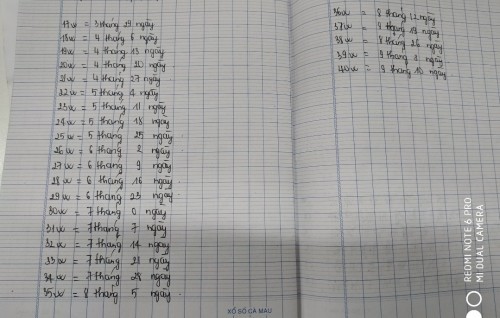 17w = 3 tháng 29 ngày
18w = 4 tháng 6 ngày
19w = 4 tháng 13 ngày
20w = 4 tháng 20 ngày
21w = 4 tháng 27 ngày
22w = 5 tháng 4 ngày
23w = 5 tháng 11 ngày
24w = 5 tháng 18 ngày
25w = 5 tháng 25 ngày
26w = 6 tháng 2 ngày
27w = 6 tháng 9 ngày
28w = 6 tháng 16 ngày
29w = 6 tháng 23 ngày
30w = 7 tháng 0 ngày
31w = 7 tháng 7 ngày
32w = 7 tháng 14 ngày
33w = 7 tháng 21 ngày
34w = 7 tháng 28 ngày
35w = 8 tháng 5 ngày
36w = 8 tháng 12 ngày
37w = 8 tháng 19 ngày
38w = 8 tháng 26 ngày
39w = 9 tháng 3 ngày
40w = 9 tháng 10 ngày
XỔ SỐ CÀ MAU
REDMI NOTE 6 PRO
MI DUAL CAMERA